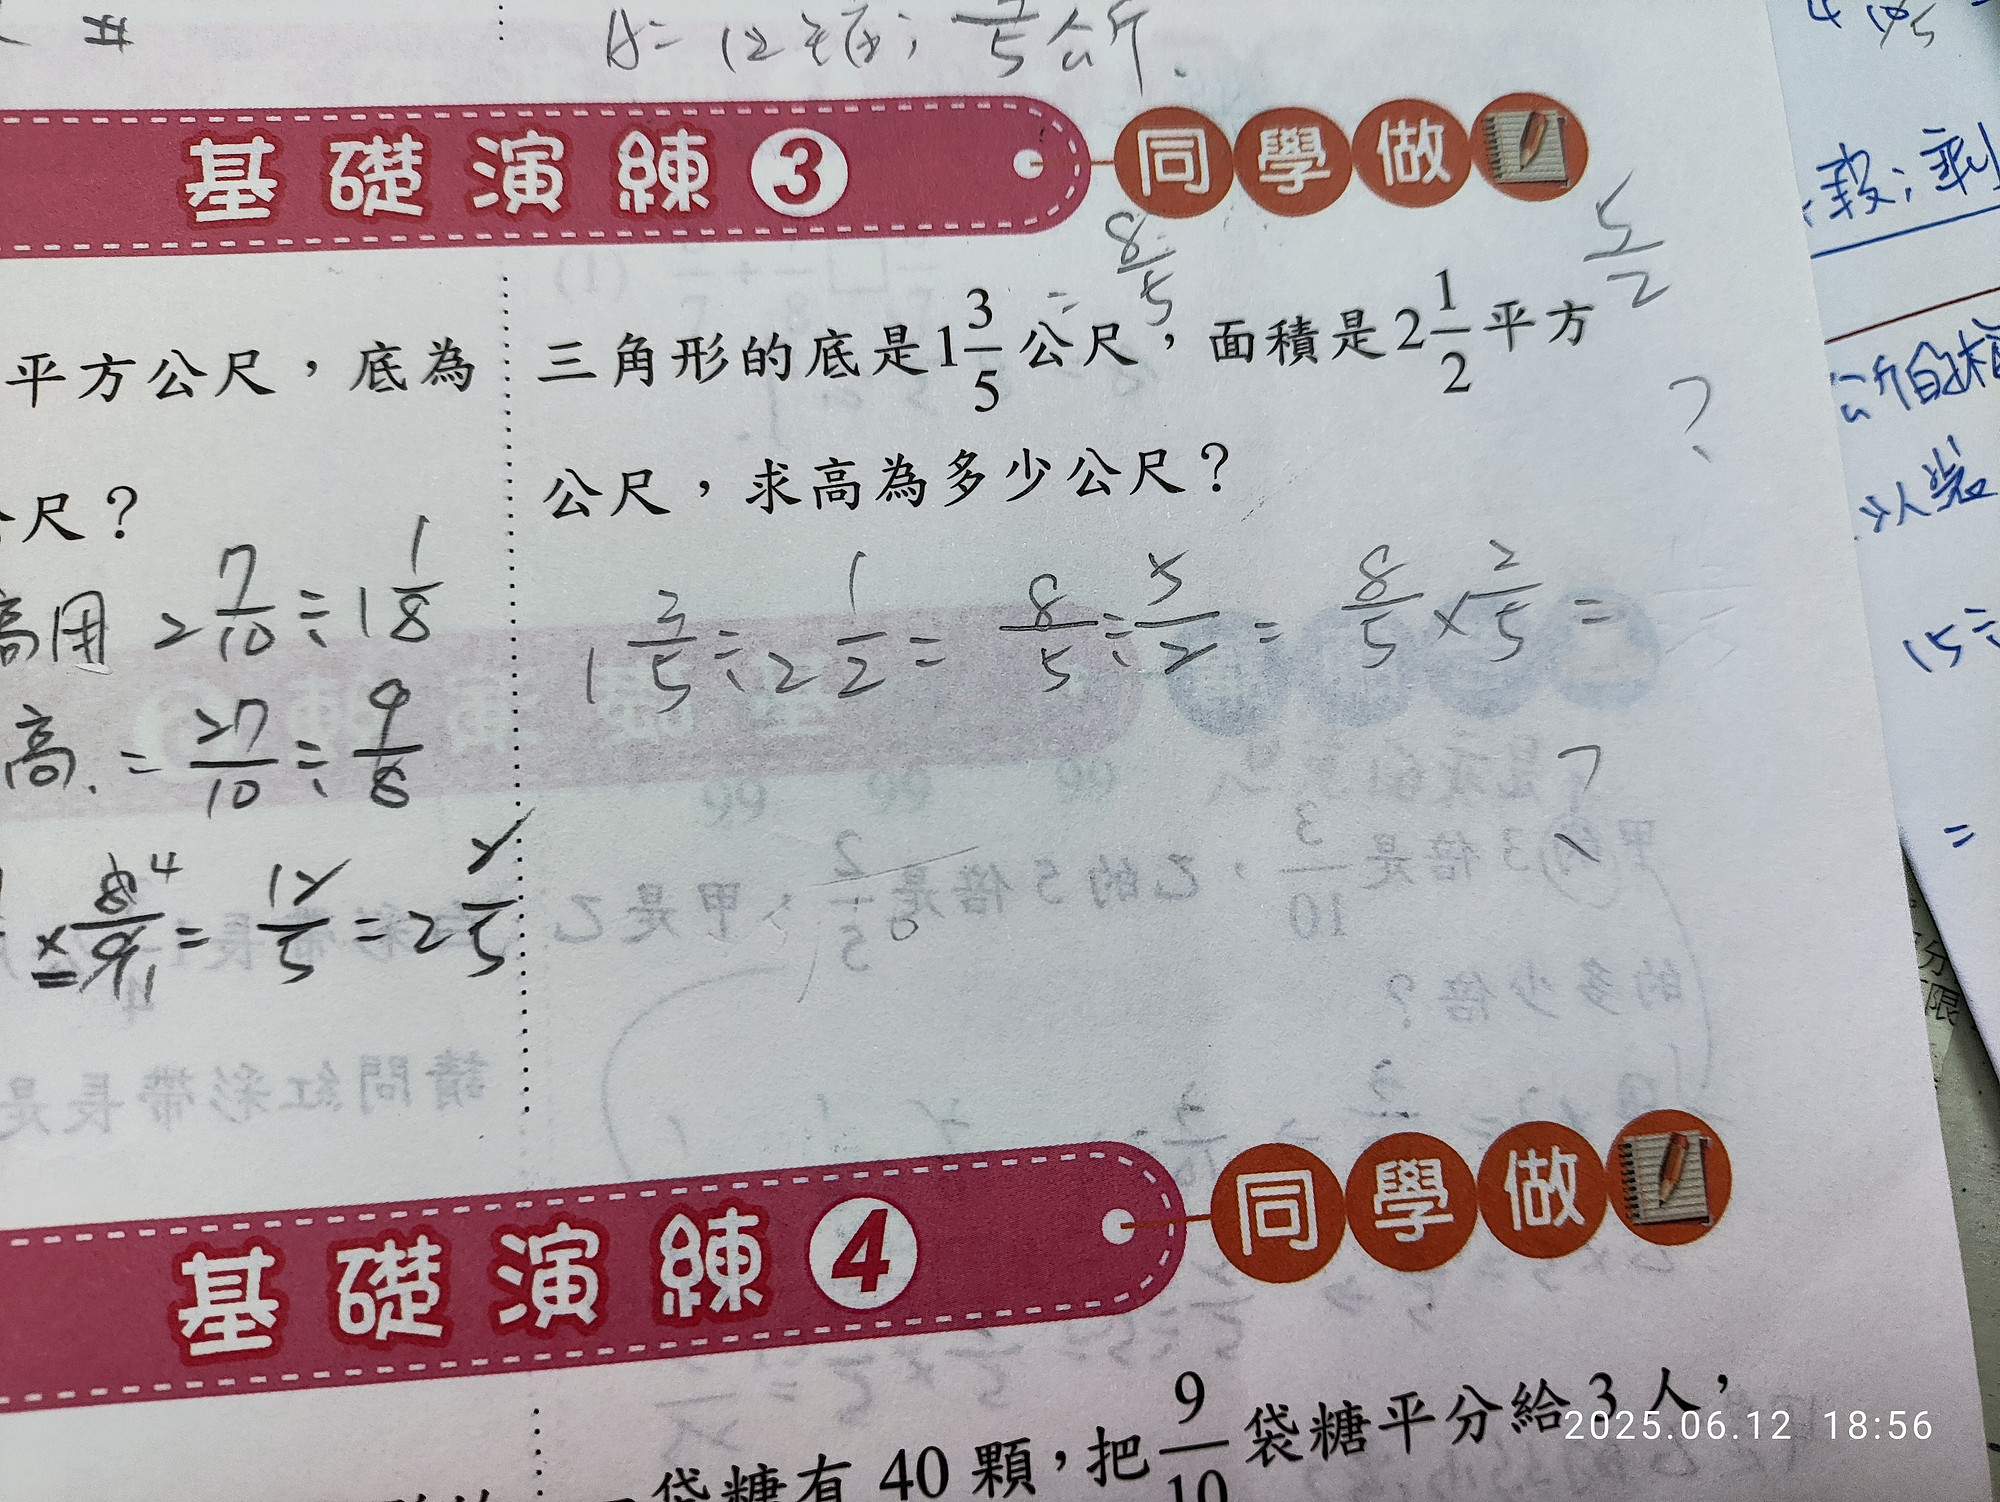 A= 12 ; /5 公斤.
基礎演練3 同學做
8/5 5/2
平方公尺，底為
尺？
三角形的底是1 3/5公尺，面積是2 1/2平方
公尺，求高為多少公尺？
?
高用 2 7/10 ÷ 1 1/8
高. = 27/10 ÷ 9/8
× 8/9 4 1 = 12/5 = 2 2/5
1 3/5 ÷ 2 1/2 = 8/5 ÷ 5/2 = 8/5 × 2/5 =
?
基礎演練4 同學做
袋糖有 40 顆，把 9/10 袋糖平分給 3 人，
段；剩
公斤的
人裝
15÷
=
分
限
2025.06.12 18:56